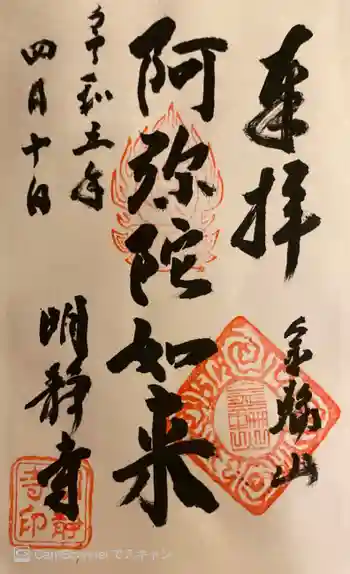 奉拝
山
阿弥陀如来
令和五年
四月十日
明静寺
明静寺印
CamScanner でスキャン